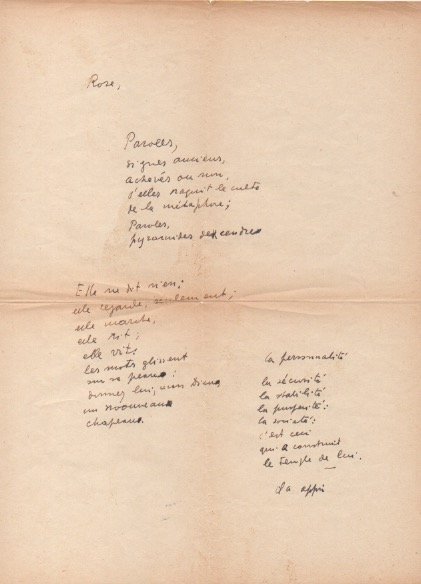 Rose,
Paroles,
signes anciens,
achevés ou non,
d'elles naquit le culte
de la métaphore;
Paroles,
pyramides de cendre
Elle ne dit rien;
elle regarde, seulement;
elle marche,
elle rit;
elle vit;
les mots glissent
sur sa peau:
donnez lui, mon Dieu,
un nouveau
chapeau.
la personnalité
la sécurité
la stabilité
la
la société:
c'est ceci
qui a construit
le temple de lui.